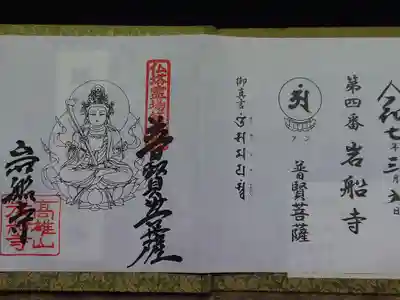 令和七年三月五日
第四番 岩船寺
アン
普賢菩薩
御真言
仏塔霊場
普賢菩薩
岩船寺
高雄山